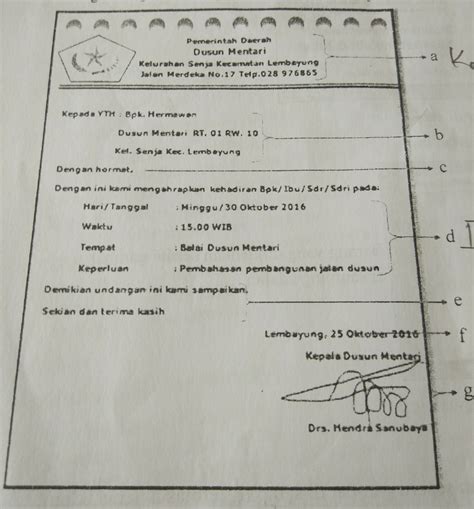 Pemerintah Daerah
Dusun Mentari
Kelurahan Senja Kecamatan Lembayung
Jalan Merdeka No.17 Telp.028 976865
a
Kepada YTH : Bpk. Hermawan
Dusun Mentari RT. 01 RW. 10
b
Kel. Senja Kec. Lembayung
Dengan hormat,
c
Dengan ini kami mengahrapkan kehadiran Bpk/Ibu/Sdr/Sdri pada:
Hari/Tanggal : Minggu/30 Oktober 2016
Waktu : 15.00 WIB
d
Tempat : Balai Dusun Mentari
Keperluan : Pembahasan pembangunan jalan dusun
Demikian undangan ini kami sampaikan.
e
Sekian dan terima kasih
Lembayung, 25 Oktober 2016
f
Kepala Dusun Mentari
g
Drs. Hendra Sanubaya